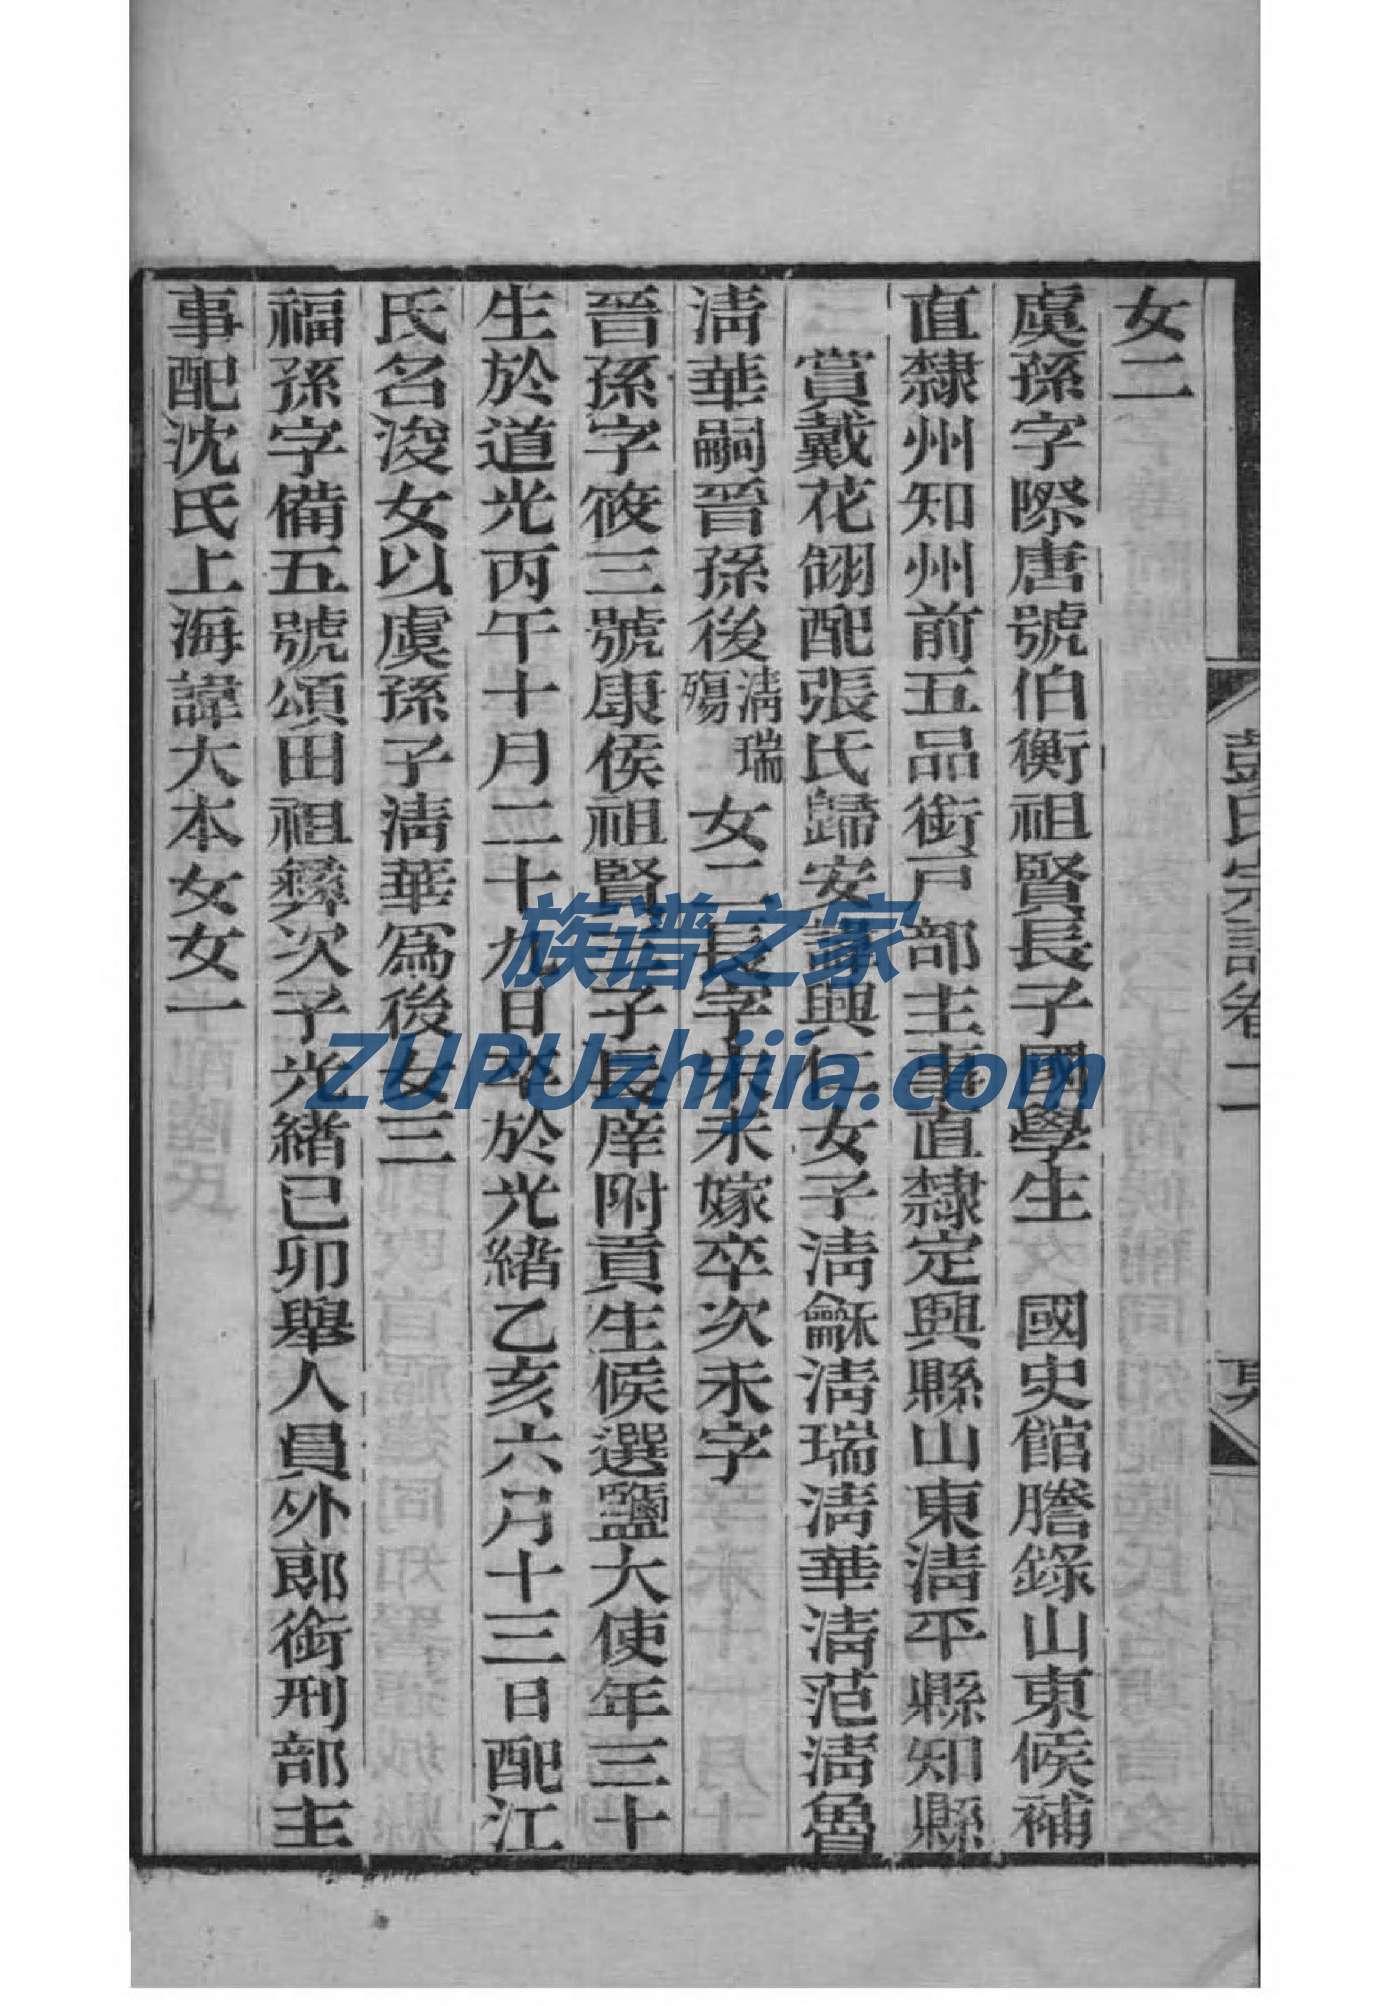 女二
虞孫字際唐號伯衡祖賢長子國學生　國史館謄錄山東候補
直隸州知州前五品銜戶部主事直隸定興縣山東淸平縣知縣
賞戴花翎配張氏歸安諱興仁女子淸龢淸瑞淸華淸范淸魯
淸華嗣晉孫後淸瑞殤女二長字宋未嫁卒次未字
晉孫字筱三號康侯祖賢三子長庠附貢生候選鹽大使年三十
生於道光丙午十月二十九日卒於光緖乙亥六月十三日配江
氏名浚女以虞孫子淸華爲後女三
福孫字備五號頌田祖彝次子光緖己卯舉人員外郞銜刑部主
事配沈氏上海諱大本女女一
彭氏宗譜卷二
族谱之家
ZUPUzhijia.com